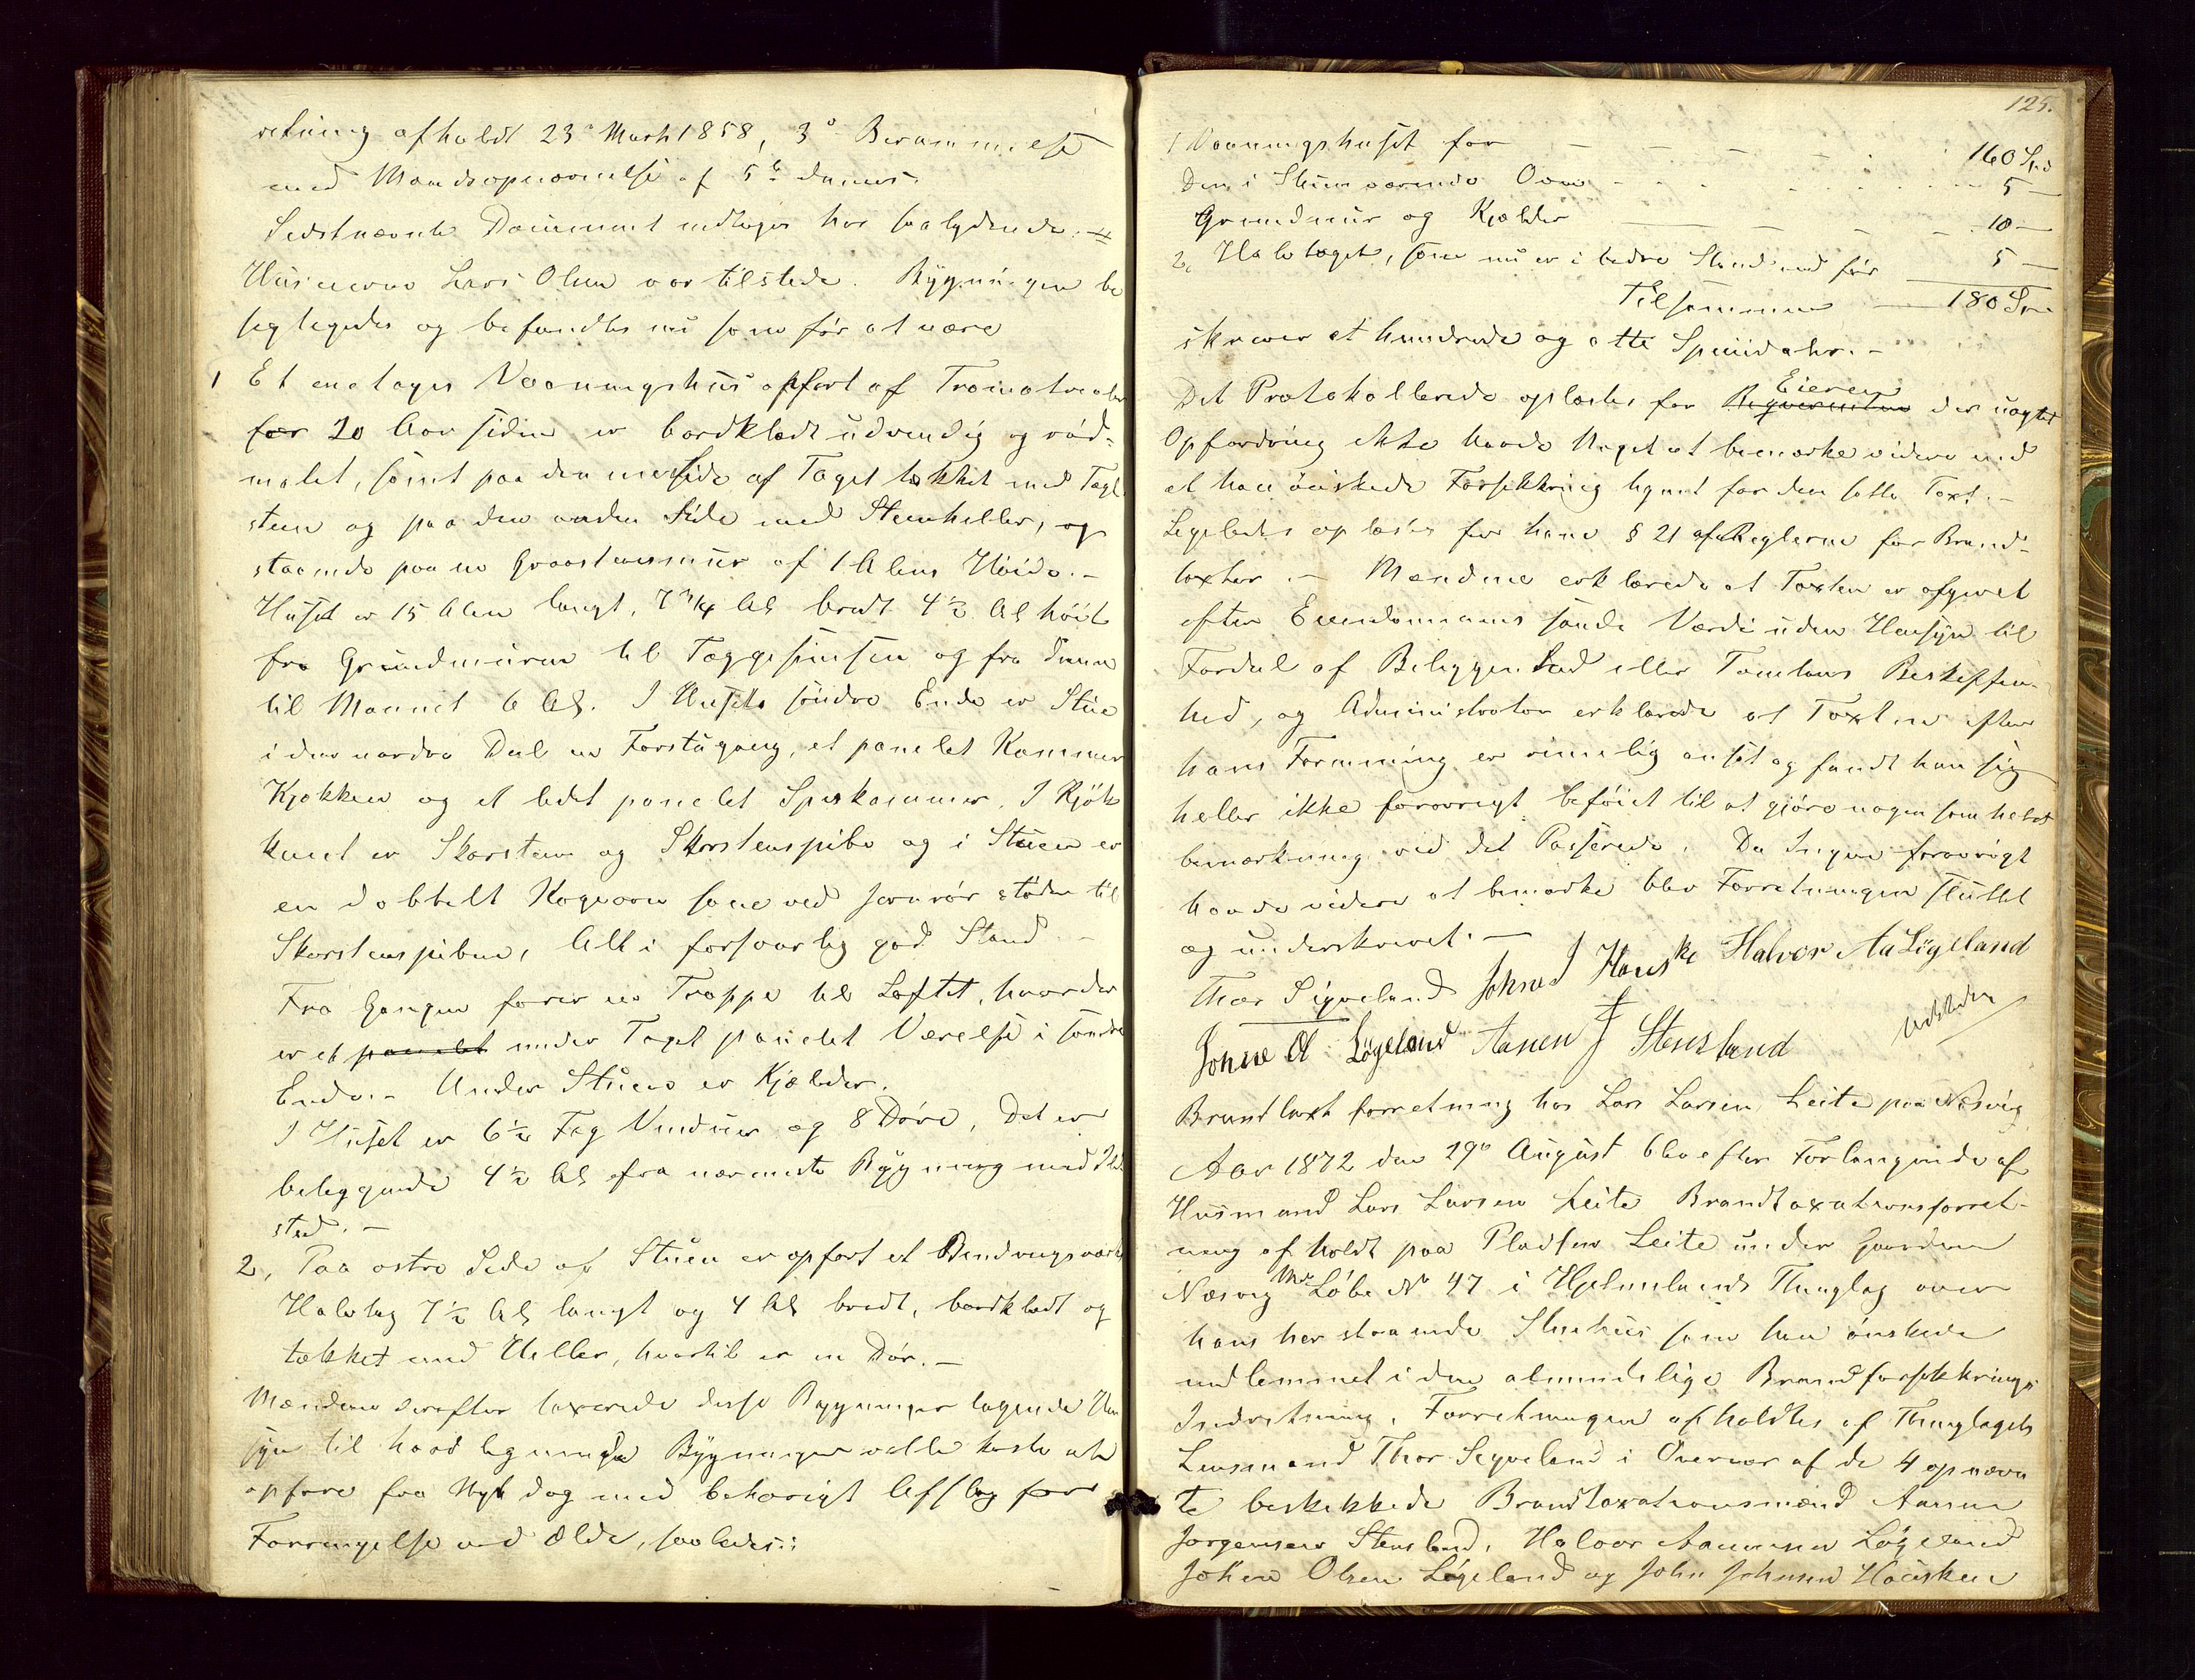 retning afholdt 23de Marts 1858, 3o Berammelse
med Mandsopnævnelse af 5te dennes.
Sidstnævnte Document indtages her saalydende: #
Huuseieren Lars Olsen var tilstede. Bygningen be
sigtigedes og befandtes nu som før at være
1 Et enetages Vaaningshuus opført af Træmaterialer
for 20 Aar siden er bordklædt udvendig og rød-
malet, samt paa den ene Side af Taget tækket med Tagl
steen og paa den anden Side med Steenheller, og
staaende paa en Graasteensmuur af 1 Alens Høide. -
Huset er 15 Alen langt, 7 3/4 Al bredt 4 1/2 Al høit
fra Grundmuren til Taggesimsen og fra denne
til Mønnet 6 Al. I Husets søndre Ende er Stue
i den nordre Deel en Forstugang, et panelet Kammer
Kjøkken og et lidet panelet Spiskammer. I Kjøk
kenet er Skorsteen og Skorsteenspibe og i Stuen er
en dobbelt Kogeovn som ved Jernrør støder til
Skorsteenspiben, Alt i forsvarlig god Stand -
Fra Gangen fører en Trappe til Loftet, hvorder
er et panelet under Taget panelet Værelse i søndre
Ende. - Under Stuen er Kjælder.
I Huset er 6 1/2 Fag Vinduer og 8 Døre. Det er
beliggende 4 1/2 Al fra nærmeste Bygning med Ild
sted. -
2, Paa østre Side af Stuen er opført et Bindingsværks
Halvtag 7 1/2 Al langt og 4 Al bredt, bordklædt og
tækket med Heller, hvortil er en Dør. -
Mændene derefter taxerede disse Bygninger tagende Hen
syn til hvad lignende Bygninger ville koste at
opføre fra Nyt dog med behørigt Afslag for
Forringelse ved Ælde, saaledes:
125.
1 Vaaningshuset for 160 Spd
Den i Stuen værende Ovn 5 —
Grundmuur og Kjælder 10 —
2, Halvtaget, som nu er i bedre Stand end før 5 —
Tilsammen 180 Spd
skriver et hundrede og otti Speciedaler. -
Eieren
Det Protokollerede oplæstes for Reqvirenten der uagtet
Opfordring ikke havde Noget at bemærke videre end
at han ønskede Forsikkring tegnet for den satte Taxt. -
Ligeledes oplæstes for ham § 21 af Reglerne for Brand-
taxter. - Mændene erklærede at Taxten er afgivet
efter Eiendommens sande Værdi uden Hensyn til
Fordeel af Beliggenhed eller Tomtens Beskaffen-
hed, og Administrator erklærede at Taxten efter
hans Formening er rimelig ansat og fandt han sig
heller ikke forøvrigt beføiet til at gjøre nogensomhelst
bemærkning ved det Passerede. Da Ingen forøvrigt
havde videre at bemærke blev Forretningen sluttet
og underskrevet. —
Thor Sigveland John J Hauske Halvor Aa Løgeland
Johne Ol Løgeland Aanen J Stensland
Brandtaxtforretning hos Lars Larsen Leite paa Næsvig
Aar 1872 den 29de August blev efter Forlangende af
Husmand Lars Larsen Leite Brandtaxationsforret-
ning afholdt paa Pladsen Leite under Gaarden
Næsvig Mt. Løbe No 47 i Hjelmelands Thinglag over
hans her staaende Stuehuus som han ønskede
indlemmet i den almindelige Brandforsikkrings
Indretning. Forretningen afholdtes af Thinglagets
Lensmand Thor Sigveland i Overvær af de 4 opnævn
te beskikkede Brandtaxationsmænd Aanen
Jørgensen Stensland, Halvor Aanensen Løgeland
Johne Olsen Løgeland og John Johnsen Hausken